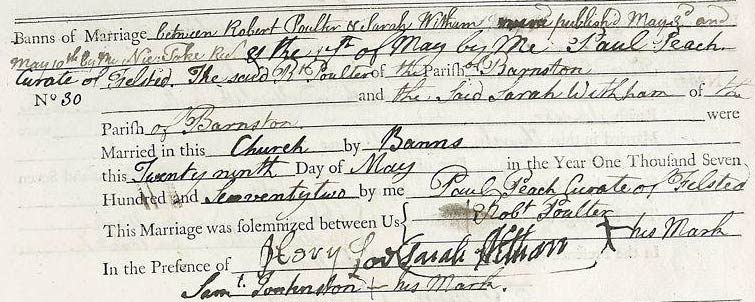 Banns of Marriage between Robert Poulter & Sarah Witham were publish'd May 3d and
May 10th by Me Nic: Toke Rec & the 1st of May by Me Paul Peach
Curate of Felsted. The said Rt Poulter of the Parish of Barnston
No 30 and the Said Sarah Witham of the
Parish of Barnston were
Married in this Church by Banns
this Twenty ninth Day of May in the Year One Thousand Seven
Hundred and Seventytwo by me Paul Peach Curate of Felsted
This Marriage was solemnized between Us { Robt Poulter
Sarah Witham + his Mark
In the Presence of Henry
Saml. + his Mark.